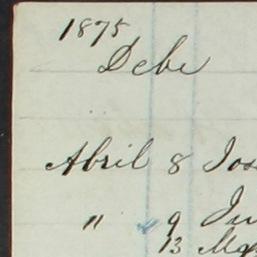 1875
Debe
Abril 8 Jos
" 9
13